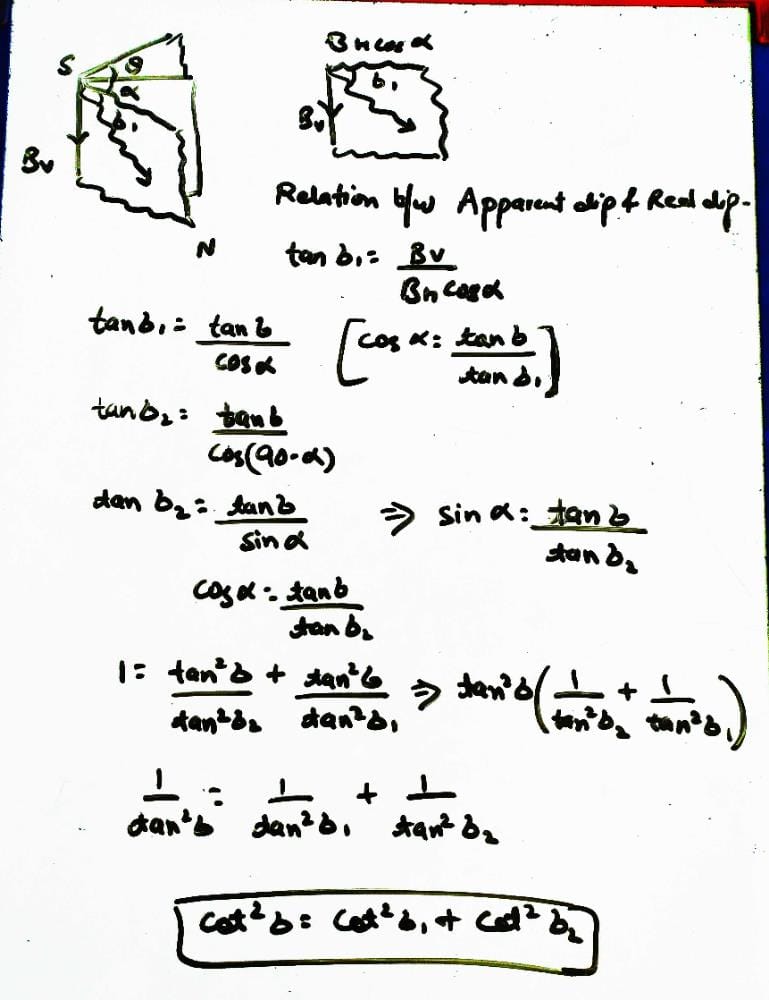 S θ α
b₁
Bv
N
BH cos α
b₁
Bv
Relation b/w Apparent dip & Real dip-
tan b₁ = Bv / BH cos α
tan b₁ = tan b / cos α [cos α = tan b / tan b₁]
tan b₂ = tan b / cos(90-α)
tan b₂ = tan b / sin α ⇒ sin α = tan b / tan b₂
cos α = tan b / tan b₂
1 = tan² b / tan² b₂ + tan² b / tan² b₁ ⇒ tan² b (1 / tan² b₂ + 1 / tan² b₁)
1 / tan² b = 1 / tan² b₁ + 1 / tan² b₂
cot² b = cot² b₁ + cot² b₂